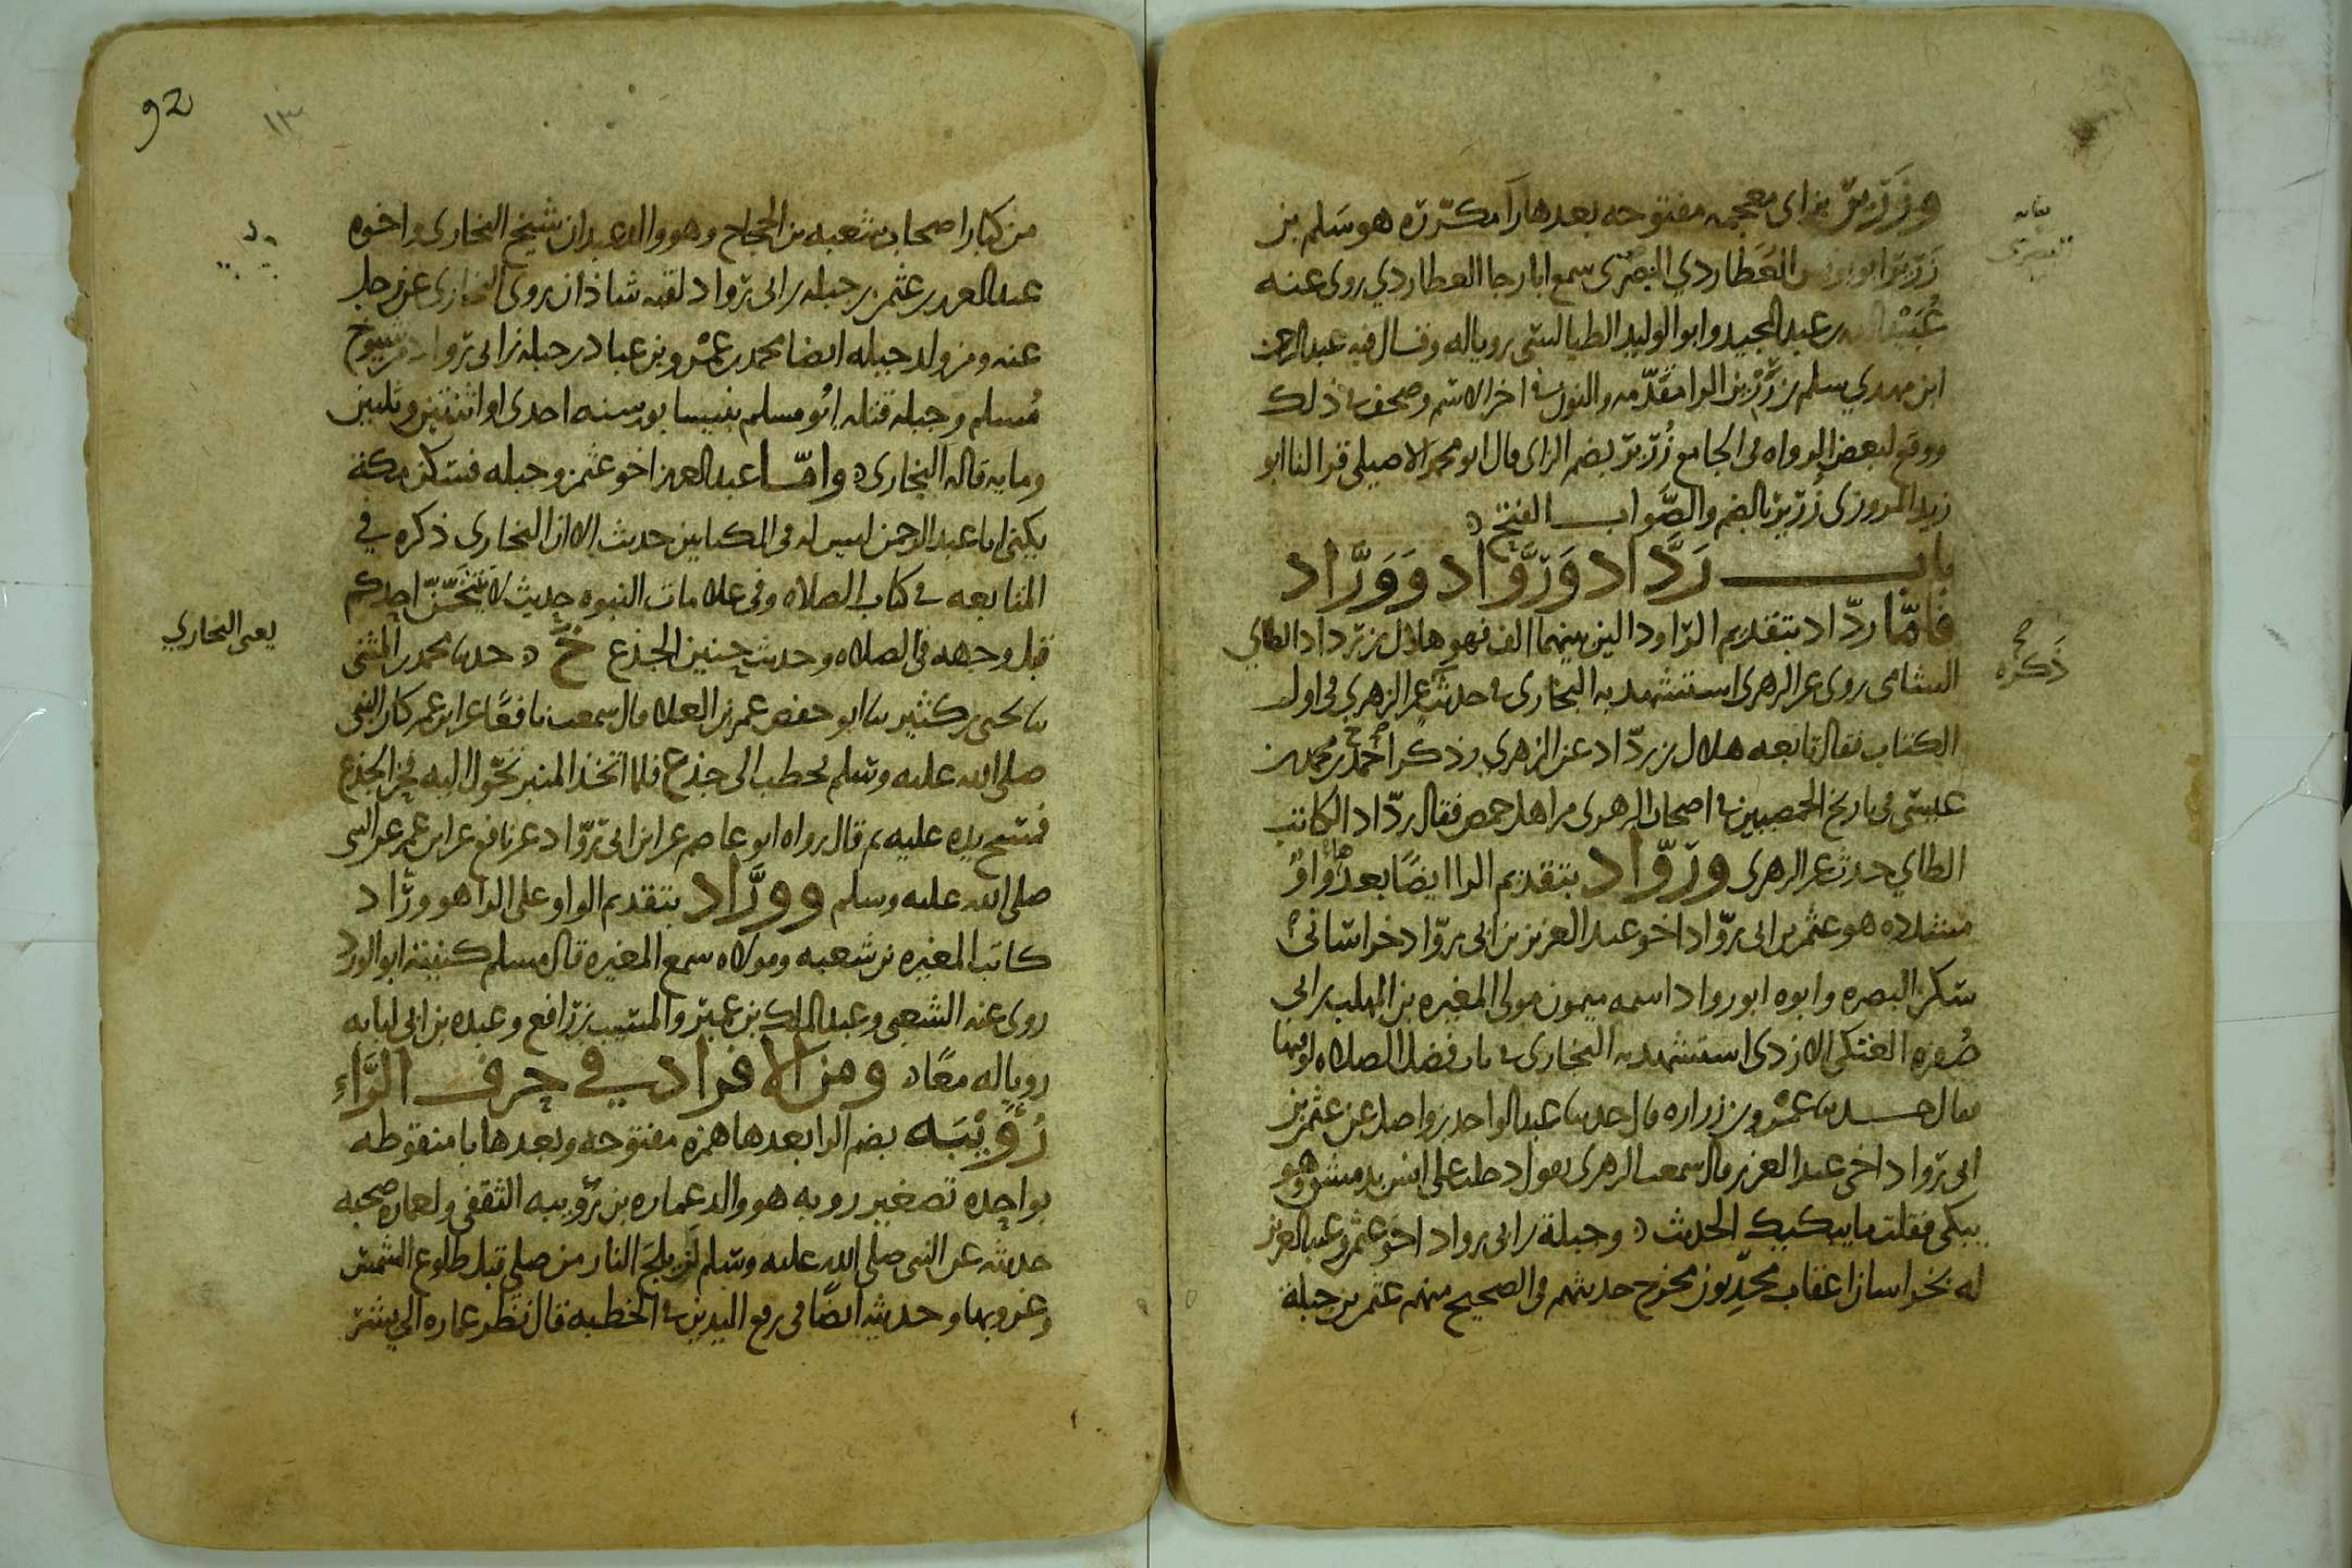 وزَرير بزاى معجمه مفتوحه بعدها را مكررّه هو سَلم بن
زَرير ابو يونس العُطاردي البصرى سمع ابا رجا العطاردي روى عنه
عُبَيْد الله بن عبد المجيد وابو الوليد الطيالسى رويا له وقال فيه عبد الرحمن
ابن مهدي سلم بن رَزين الرا مقدّمه والنون في اخر الاسم وصحف في ذلك
ووقع لبعض الرواه في الجامع زُرير بضم الزاى قال ابو محمد الاصيلى قرا لنا ابو
زيد المروزى زُرير بالضم والصَّواب الفتح
باب رَدَّاد وَرَوَّاد وَوَرَّاد
فأمّا ردّاد بتقديم الرا ودالين بينهما الف فهو هلال بن ردّاد الطاي
الشامى روى عن الزهرى استشهد به البخارى في حديث عن الزهري في اول
الكتاب فقال تابعه هلال بن ردّاد عن الزهري وذكر احمد بن محمد بن
عيسى في تاريخ الحمصيين في اصحاب الزهرى من اهل حمص فقال ردّاد الكاتب
الطاي حدث عن الزهرى وروّاد بتقديم الرا ايضًا بعدها واوٌ
مثقله هو عثمن بن ابى روّاد اخو عبد العزيز بن ابى روّاد خراسانىّ
سكن البصره وابوه ابو رواد اسمه ميمون مولى المغيره بن المهلب بن ابى
صُفره العتكى الازدى استشهد به البخارى في باب فضل الصلاه لوقتها
فقال حدثنا عَمْرو بن زراره قال حدثنا عبد الواحد بن واصل عن عثمن بن
ابى روّاد اخى عبد العزيز قال سمعت الزهرى يقول دخلت على انس بدمشق وهو
يبكى فقلت ما يبكيك الحديث وجبلة بن ابى رواد اخو عثمن وعبد العزيز
له بخراسان اعقاب محدِّثون مخرج حديثهم في الصحيح منهم عثمن بن جبلة
ذكره
صح
92
١٣
من كبار اصحاب شعبه بن الحجاج وهو والد عبدان شيخ البخارى واخوه
عبد العزيز بن عثمن بن جبله بن ابى روّاد لقبه شاذان روى البخارى عن رجل
عنه ومن ولد جبله ايضا محمد بن عَمْرو بن عباد بن جبله بن ابى روّاد من شيوخ
مُسلم وجبله قتله ابُو مسلم بنيسابور سنه احدى او اثنتين وثلثين
ومايه قاله البخارى وامّا عبد العزيز اخو عثمن وجبله فسكن مكة
يكنى ابا عبد الرحمن ليس له في الكتابين حديث الا ان البخارى ذكره في
المتابعه في كتاب الصلاه وفي علامات النبوه حديث لا يتنخّمنّ احدكم
قبل وجهه في الصلاه وحديث حنين الجذع خ حدثنا محمد بن المثنى
ثنا يحيى بن كثير ثنا ابو حفص عمر بن العلا قال سمعت نافعًا عن ابن عمر كان النبى
صلى الله عليه وسلم يخطب الى جذع فلما اتخذ المنبر تحوّل اليه فحن الجذع
فمسح يده عليه ثم قال رواه ابو عاصم عن ابن ابى روّاد عن نافع عن ابن عمر عن النبى
صلى الله عليه وسلم وورَّاد بتقديم الواو على الرا هو ورّاد
كاتب المغيره بن شعبه ومولاه سمع المغيره قال مسلم كنيته ابو الورد
روى عنه الشعبى وعبد الملك بن عمير والمسيب بن رافع وعبده بن ابى لبابه
رويا له معًا ومن الافراد في حرف الرَّاء
رُؤَيْبَه بضم الرا بعدها همزه مفتوحه وبعدها با منقوطه
بواحده تصغير روبه هو والد عماره بن رُؤيبه الثقفى ولعماره صحبه
حديثه عن النبى صلى الله عليه وسلم لن يلج النار من صلى قبل طلوع الشمس
وغروبها وحديثه ايضًا في رفع اليدين في الخطبه قال نظر عماره الى بشر
يعنى البخاري